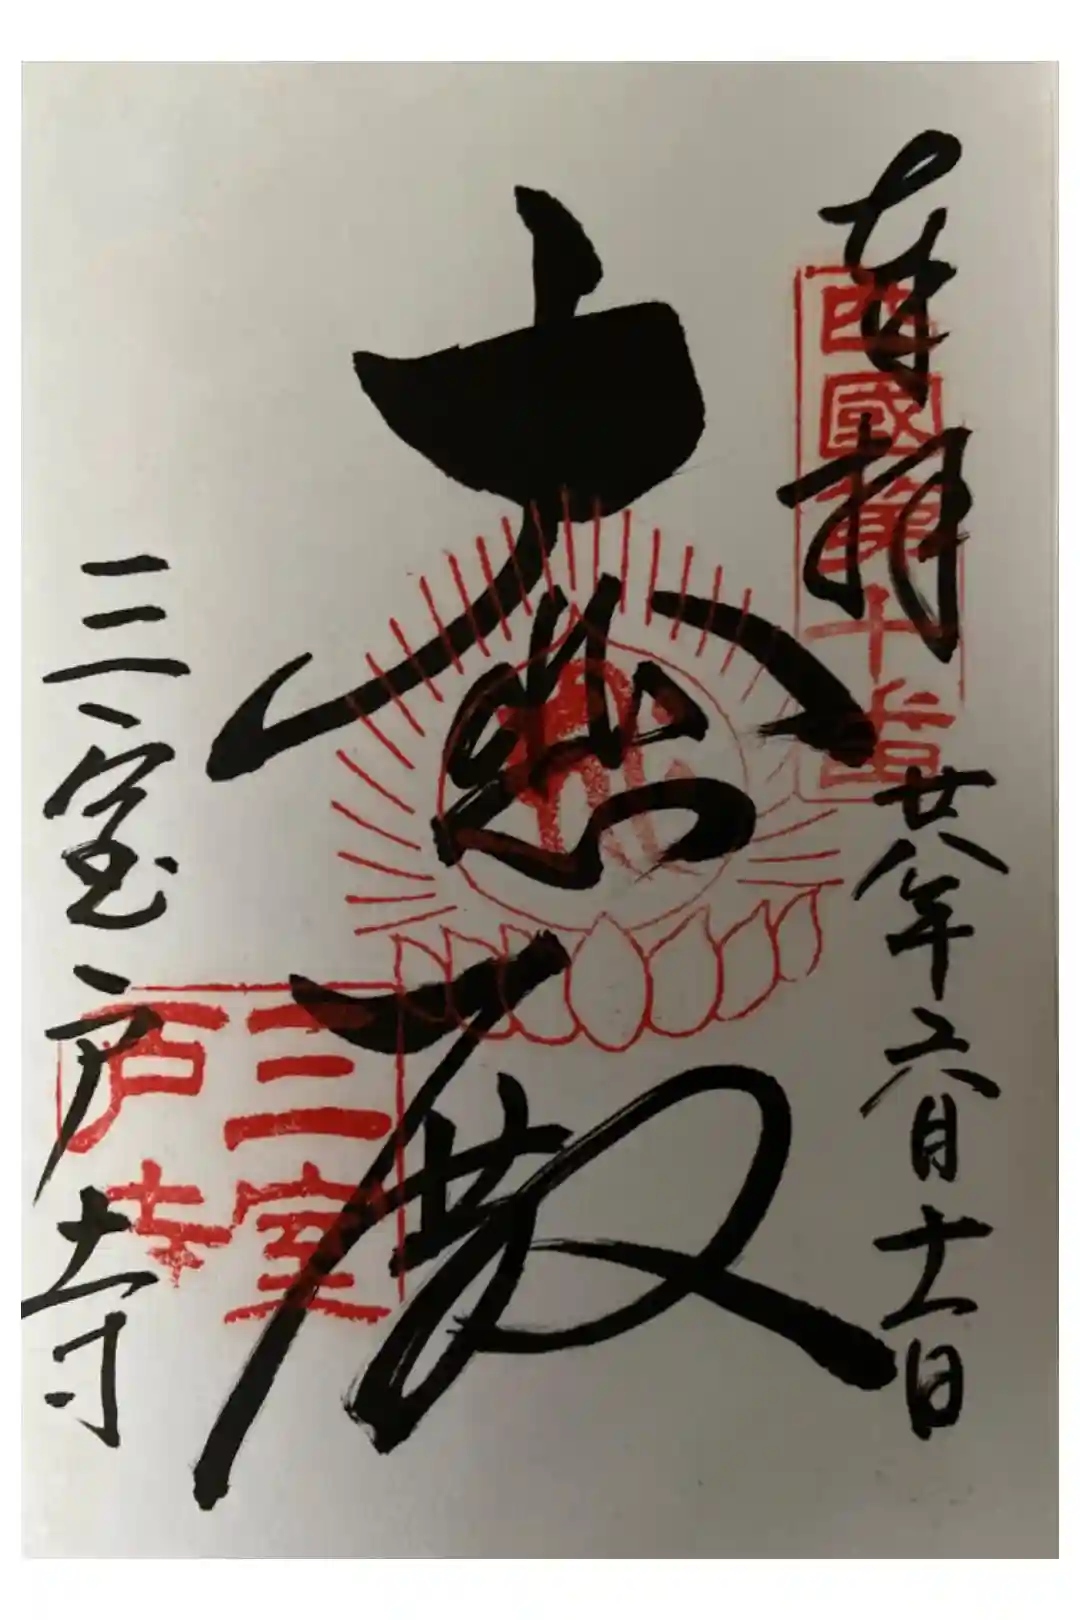 奉拝
廿八年六月十一日
西國第十番
大悲殿
三室戸寺
三室戸寺